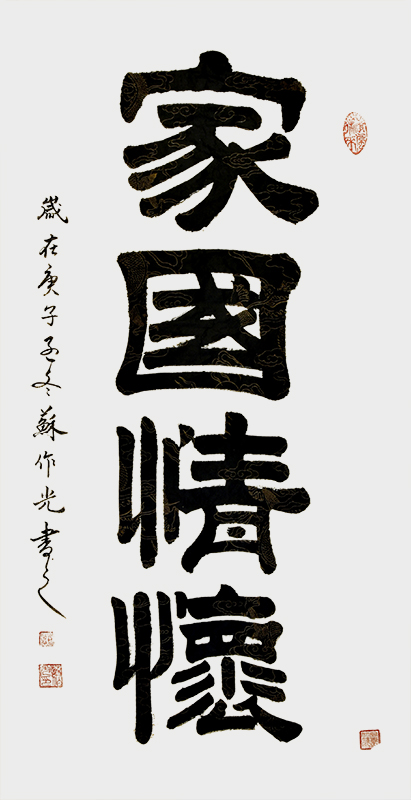 家國情懷
歲在庚子孟冬蘇作光書之